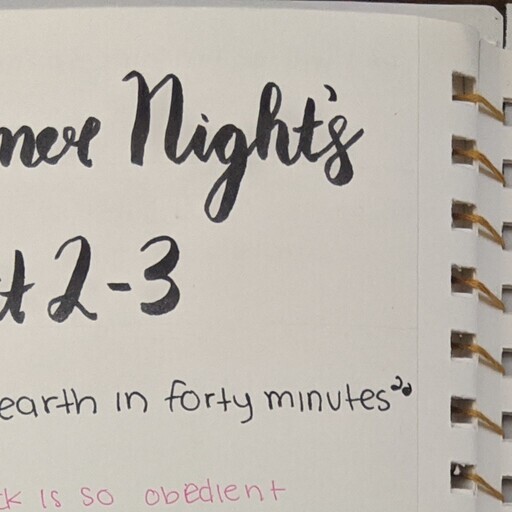 mer Night's
t 2-3
earth in forty minutes"
ck is so obedient